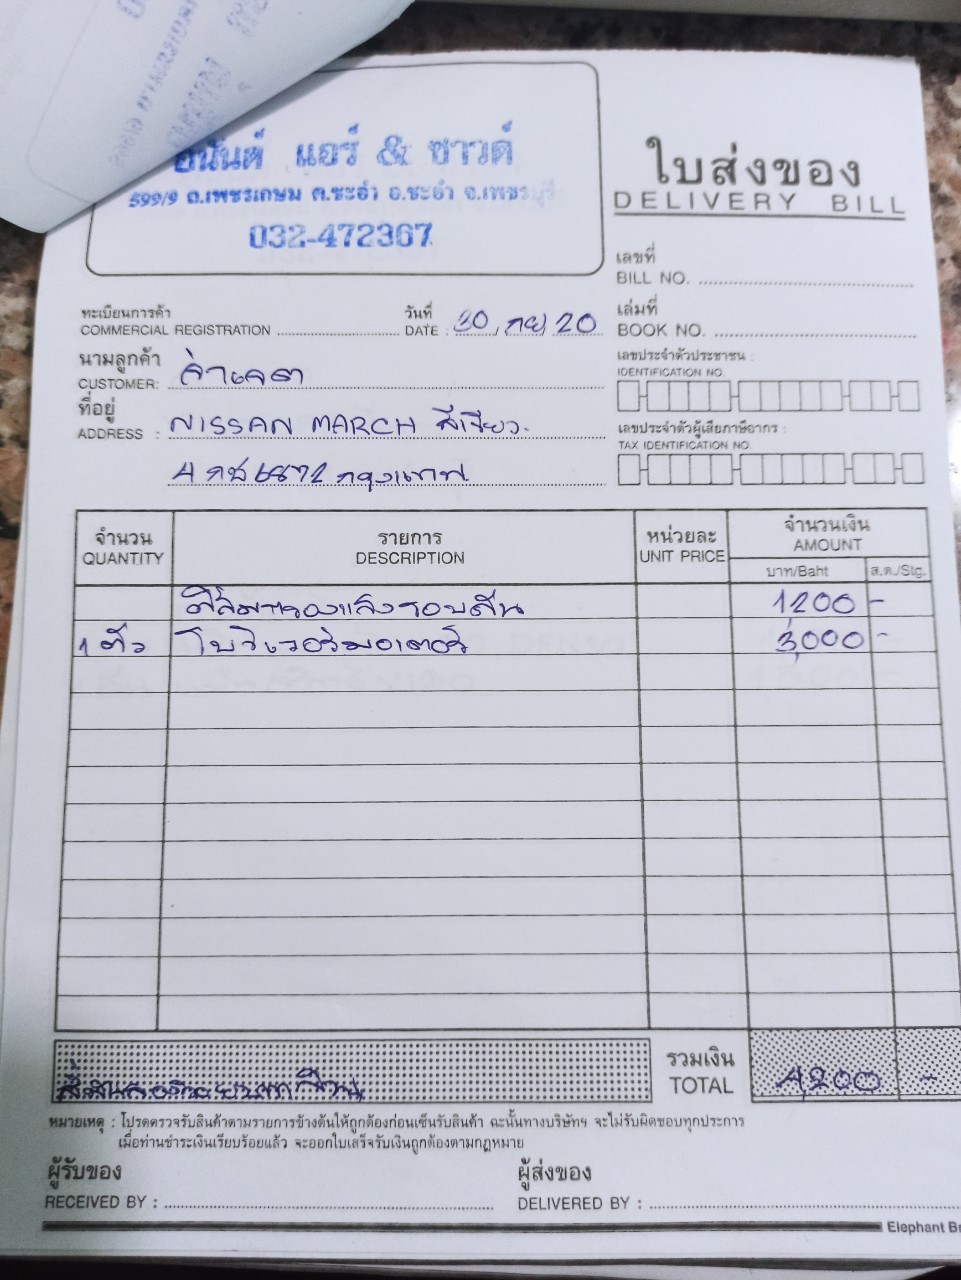 อนันต์ แอร์ & ซาวด์
599/9 ถ.เพชรเกษม ต.ชะอำ อ.ชะอำ จ.เพชรบุรี
032-472367
ใบส่งของ
DELIVERY BILL
เลขที่
BILL NO.
ทะเบียนการค้า
COMMERCIAL REGISTRATION
วันที่
DATE : 30 / กย / 20
เล่มที่
BOOK NO.
นามลูกค้า
CUSTOMER: จ่าเจต
เลขประจำตัวประชาชน :
IDENTIFICATION NO.
ที่อยู่
ADDRESS : NISSAN MARCH สีเขียว
เลขประจำตัวผู้เสียภาษีอากร :
TAX IDENTIFICATION NO.
4 กช 6872 กรุงเทพ
จำนวน
QUANTITY
รายการ
DESCRIPTION
หน่วยละ
UNIT PRICE
จำนวนเงิน
AMOUNT
บาท/Baht
ส.ต./Stg.
ฟิล์มกรองแสงรอบคัน 1200 -
1 ตัว โบว์เวอร์มอเตอร์ 3,000 -
สี่พันสองร้อยบาทถ้วน
รวมเงิน
TOTAL
4,200 -
หมายเหตุ : โปรดตรวจรับสินค้าตามรายการข้างต้นให้ถูกต้องก่อนเซ็นรับสินค้า ฉะนั้นทางบริษัทฯ จะไม่รับผิดชอบทุกประการ
เมื่อท่านชำระเงินเรียบร้อยแล้ว จะออกใบเสร็จรับเงินถูกต้องตามกฎหมาย
ผู้รับของ
RECEIVED BY :
ผู้ส่งของ
DELIVERED BY :
Elephant